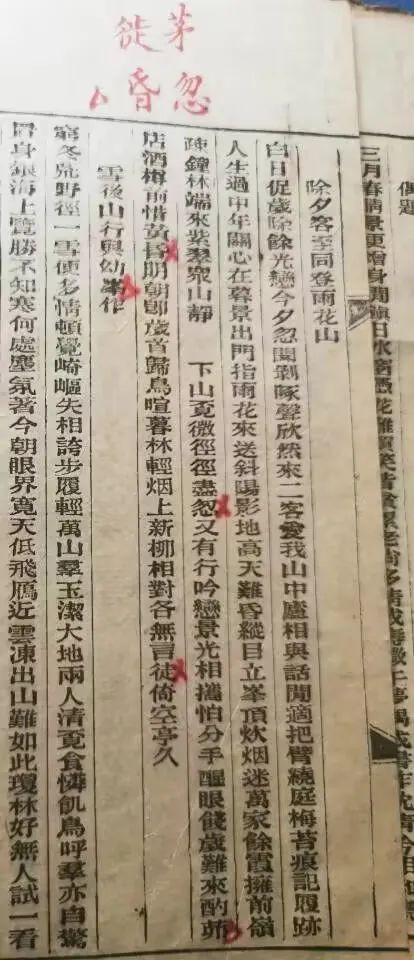 茅忽
徙昏
偶題
三月春晴景更增身閒鎮日水窗憑花
除夕客至同登雨花山
白日促歲除餘光戀今夕忽聞剝啄聲欣然來二客愛我山中廬相與話閒適把臂繞庭梅苔痕記履跡
人生過中年關心在暮景出門指雨花來送斜陽影地高天難昏縱目立峯頂炊烟迷萬家餘霞擁前嶺
疎鐘林端來紫翠衆山靜　下山覓微徑徑盡忽又有行吟戀景光相攜怕分手醒眼餞歲難來酌茆
店酒樽前惜黃昏明朝卽歲首歸鳥喧暮林輕烟上新柳相對各無言徒倚空亭久
雪後山行與幼峯作
窮冬荒野徑一雪便多情頓覺崎嶇失相誇步履輕萬山羣玉潔大地兩人清覓食憐飢鳥呼羣亦自驚
置身銀海上覽勝不知寒何處塵氛著今朝眼界寬天低飛鴈近雲凍出山難如此瓊林好無人試一看